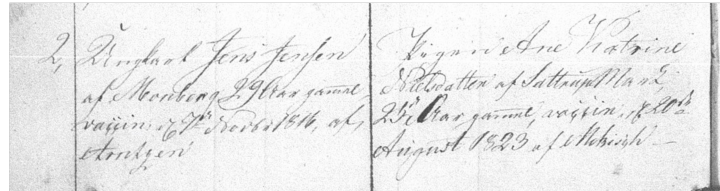 2, Ungkarl Jens Jensen
af Monberg 29 Aar gammel,
vaccin: d 7de Novbr 1816, af,
Arntzen
Pigen Ane Katrine
Nielsdatter af Sattrup Mark,
25½ Aar gammel, vaccin: d 20de
August 1823 af